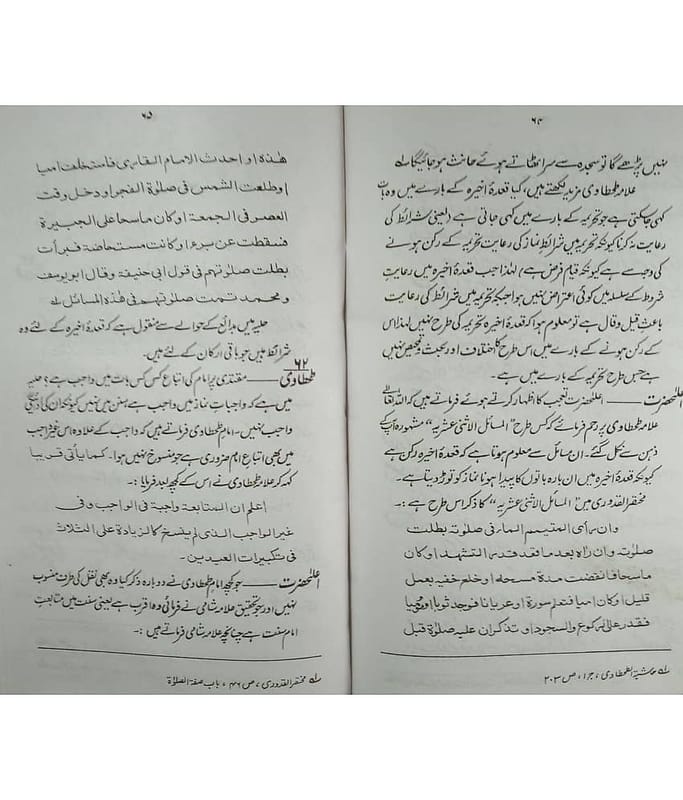 ۶۴
نہیں پڑھے گا تو سجدہ سے سر اٹھاتے ہوئے حانث ہو جائیگا لہ
علامہ طحطاوی مزید لکھتے ہیں، کیا قعدۂ اخیرہ کے بارے میں وہ بات
کہی جا سکتی ہے جو تحریمہ کے بارے میں کہی جاتی ہے (یعنی شرائط کی
رعایت نہ کرنا کیونکہ تحریمہ میں شرائط نماز کی رعایت تحریمہ کے رکن ہونے
کی وجہ سے ہے کیونکہ قیام فرض ہے) لہٰذا جب قعدۂ اخیرہ میں رعایت
شروط کے سلسلہ میں کوئی اعتراض نہیں ہوا جبکہ تحریمہ میں شرائط کی رعایت
باعث قیل و قال ہے تو معلوم ہوا کہ قعدۂ اخیرہ تحریمہ کی طرح نہیں لہٰذا اس
کے رکن ہونے کے بارے میں اس طرح کا اختلاف اور بحث و تمحیص نہیں
ہے جس طرح تحریمہ کے بارے میں ہے۔
اعلٰحضرت ــــ اعلٰحضرت تعجب کا اظہار کرتے ہوئے فرماتے ہیں کہ اللہ تعالٰی
علامہ طحطاوی پر رحم فرمائے کہ کس طرح "المسائل الاثنی عشریہ" مشہورہ آپ کے
ذہن سے نکل گئے۔ ان مسائل سے معلوم ہوتا ہے کہ قعدۂ اخیرہ رکن ہے
کیونکہ قعدۂ اخیرہ میں ان بارہ باتوں کا پیدا ہونا نماز کو توڑ دیتا ہے۔
مختصر القدوری میں "المسائل الاثنی عشریہ" کا ذکر اس طرح ہے :۔
وان رأی المتیمم الماء فی صلوٰتہ بطلت
صلوٰتہ وان راٰہ بعد ما قعد قدر التشھد او کان
ماسحا فانقضت مدة مسحہ او خلع خفیہ بعمل
قلیل او کان امیا فتعلم سورة او عریانا فوجد ثوبا او مومیا
فقدر علی الرکوع والسجود او تذکر ان علیہ صلوٰة قبل
لہ حاشیۃ الطحطاوی، جز ۱، ص ۲۰۳
۶۵
ھٰذہ او احدث الامام القاری فاستخلف امیا
او طلعت الشمس فی صلوٰة الفجر او دخل وقت
العصر فی الجمعة او کان ماسحا علی الجبیرة
فسقطت عن برء او کانت مستحاضة فبرأت
بطلت صلوٰتھم فی قول ابی حنیفة وقال ابویوسف
ومحمد تمت صلوٰتھم فی ھٰذہ المسائل لہ
حلیہ میں بدائع کے حوالے سے منقول ہے کہ قعدۂ اخیرہ کے لئے وہ
شرائط ہیں جو باقی ارکان کے لئے ہیں۔
۶۲
طحطاوی ــــ مقتدی پر امام کی اتباع کس کس بات میں واجب ہے؟ حلیہ
میں ہے کہ واجبات نماز میں واجب ہے سنن میں نہیں کیونکہ ان کی ادائیگی
واجب نہیں۔ امام طحطاوی فرماتے ہیں کہ واجب کے علاوہ اس غیر واجب
میں بھی اتباع امام ضروری ہے جو منسوخ نہیں ہوا۔ کما یأتی قریبا
کہہ کر علامہ طحطاوی نے اس کے کچھ بعد فرمایا :۔
اعلم ان المتابعة واجبة فی الواجب وفی
غیر الواجب الذی لم ینسخ کالزیادة علی الثلاث
فی تکبیرات العیدین۔
اعلٰحضرت ــــ جو کچھ امام طحطاوی نے دوبارہ ذکر کیا وہ بھی نقل کی طرف منسوب
نہیں اور جو تحقیق علامہ شامی نے فرمائی وہ اقرب ہے یعنی سنت میں متابعت
امام سنت ہے چنانچہ علامہ شامی فرماتے ہیں :۔
لہ مختصر القدوری، ص ۴۶، باب صفة الصلوٰة